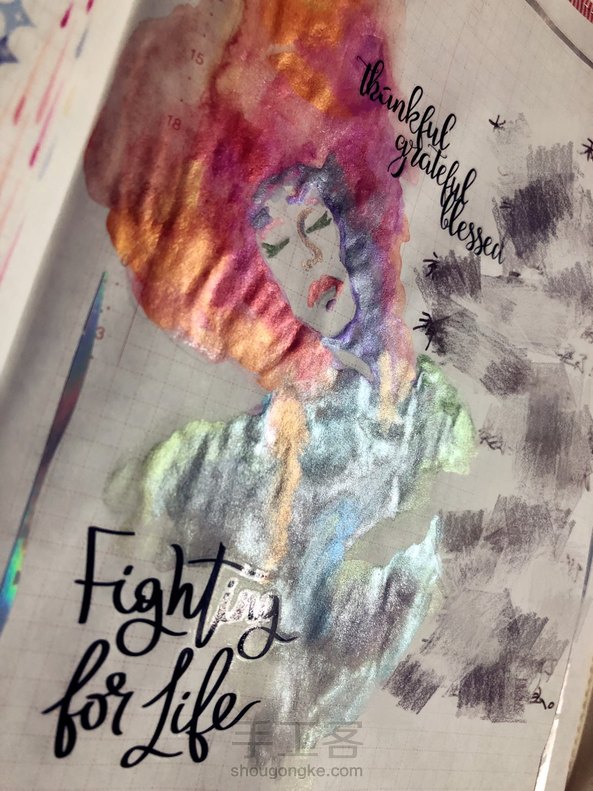 15
18
thankful
grateful
blessed
3
Fighting
for Life
手工客
shougongke.com